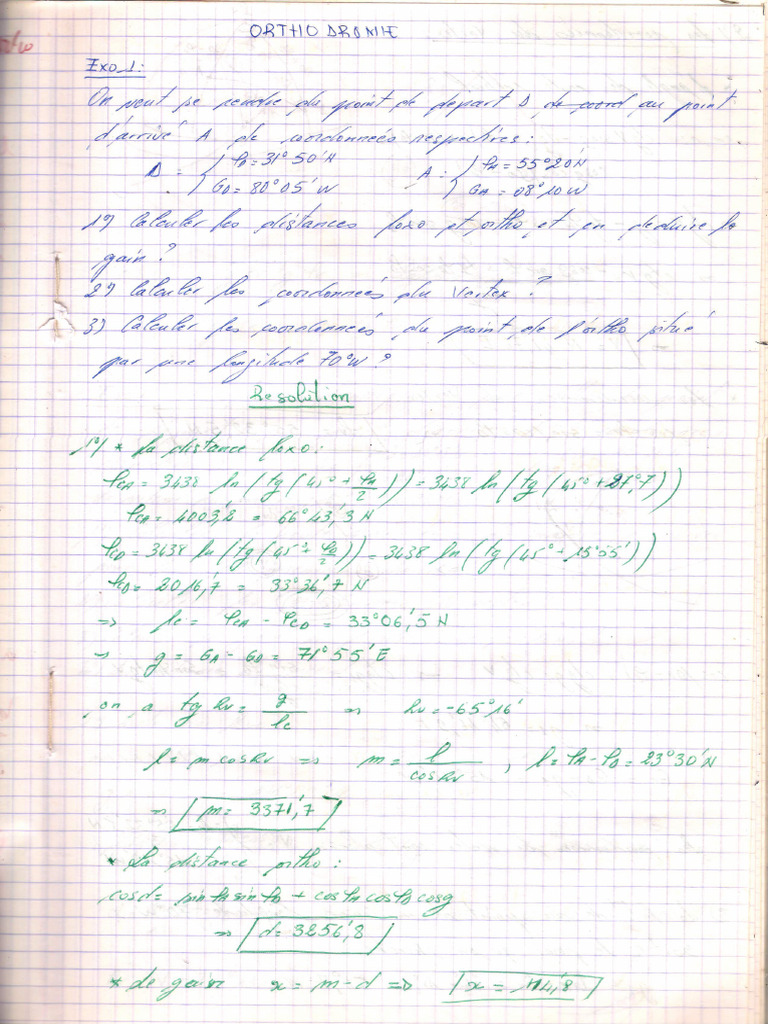 ORTHODROMIE
Exo 1:
On veut se rendre du point de depart D de coord au point
d'arrivé A de coordonneés respectives:
D = { φD = 31° 50' N A : { φA = 55° 20 N
GD = 80° 05' W GA = 08° 10 W
1°) Calculer les distances loxo et ortho et en deduire le
gain ?
2°) Calculer les coordonneés du Vertex ?
3) Calculer les coordonneés du point de l'ortho situé
par une longitude 70°W ?
Resolution
1°/ * La distance loxo:
φcA = 3438 ln (tg (45° + φA/2)) = 3438 ln (tg (45° + 27°,7))
φcA = 4003,'2 = 66° 43,'3 N
φcD = 3438 ln (tg (45° + φD/2)) = 3438 ln (tg (45° + 15°55'))
φcD = 2016,'7 = 33° 36,'7 N
=> lc = φcA - φcD = 33° 06,'5 N
→ g = GA - GD = 71° 55' E
on a tg Rv = g/lc => Rv = -65° 16'
l = m cos Rv => m = l/cos Rv , l = φA - φD = 23° 30' N
=> m = 3371,'7
* La distance ortho :
cosd = sin φA sin φD + cos φA cos φD cos g
=> d = 3256,'8
* de gain x = m - d => x = 114,'8